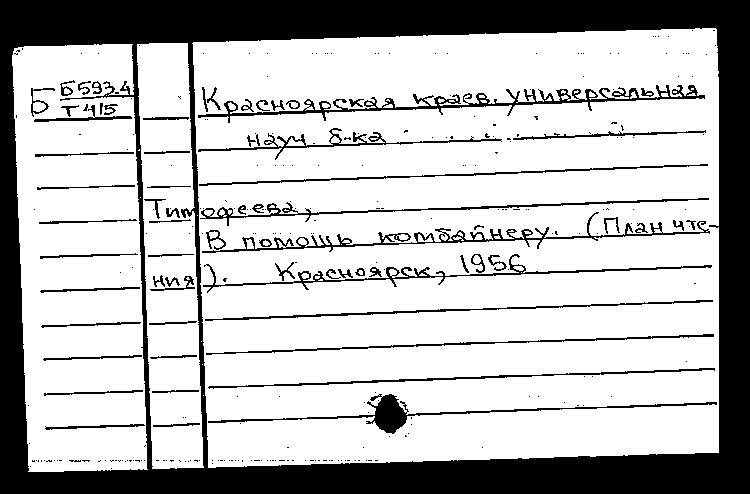 Б Б593.4
Т415
Красноярская краев. универсальная
науч. б-ка
Тимофеева,
В помощь комбайнеру. (План чте-
ния). Красноярск, 1956